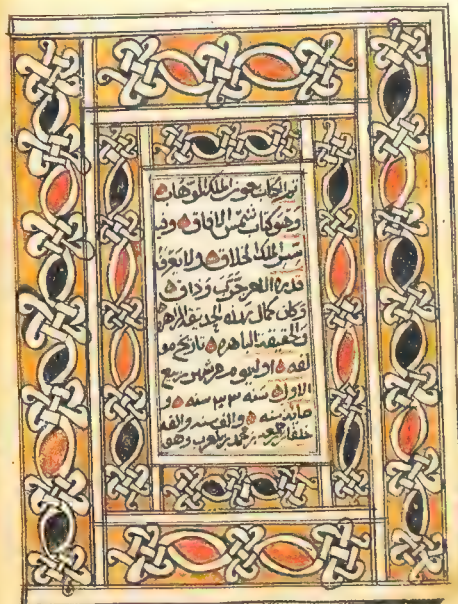 تم الكتاب بعون الملك الوهاب
وهو كتاب شمس الافاق وقد
سر الملك الخلاق ولا يعرف
قدره الا من جرب وذاق
وكان كمال هذه الحديقة الزاهرة
والحقيقة الباهره تاريخ مو
لفه اول يوم من شهر ربيع
الاول سنه ٣٣ سنه و
مائة سنه والف سنه والفه
خلفان بن جمعه بن محمد وهو